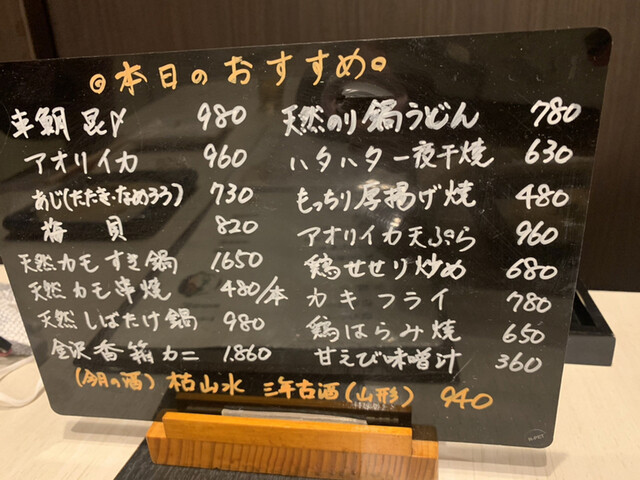 ◎本日のおすすめ。
鯛昆〆 980
アオリイカ 960
あじ(たたき・なめろう) 730
梅貝 820
天然カモすき鍋 1.650
天然カモ串焼 480/本
天然しばたけ鍋 980
金沢香箱カニ 1.860
天然のり鍋うどん 780
ハタハタ一夜干焼 630
もっちり厚揚げ焼 480
アオリイカ天ぷら 960
鶏せせり炒め 680
カキフライ 780
鶏はらみ焼 650
甘えび味噌汁 360
(今月の酒) 枯山水 三年古酒(山形) 940